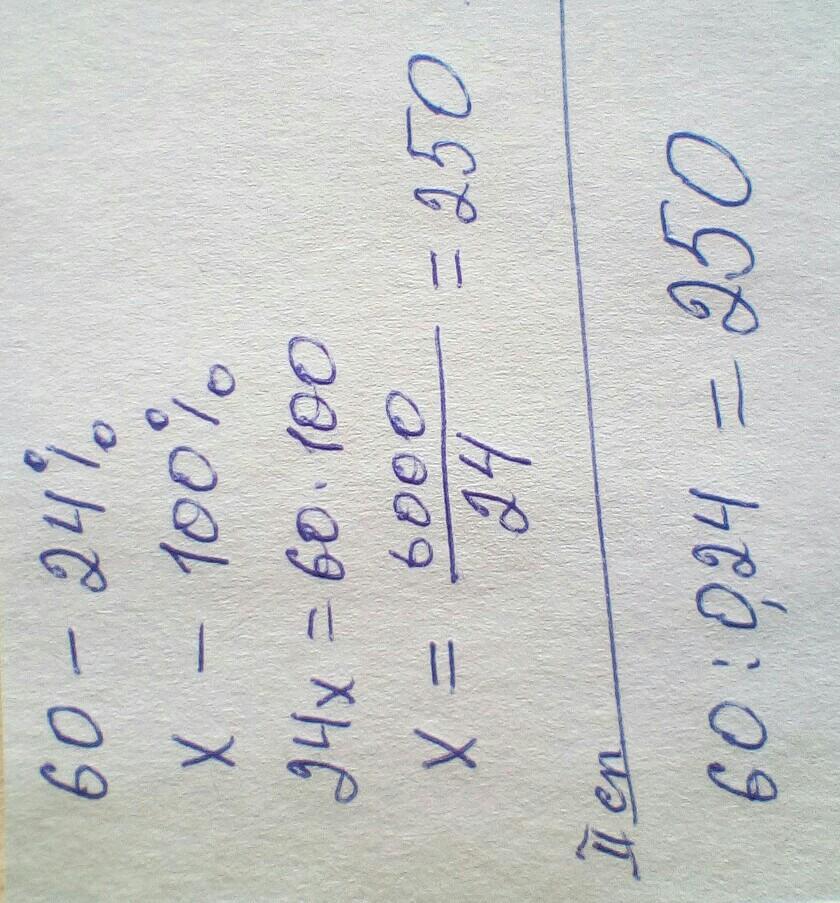 60 - 24%
x - 100%
24x = 60 · 100
x = 6000/24 = 250
II сп
60 : 0,24 = 250